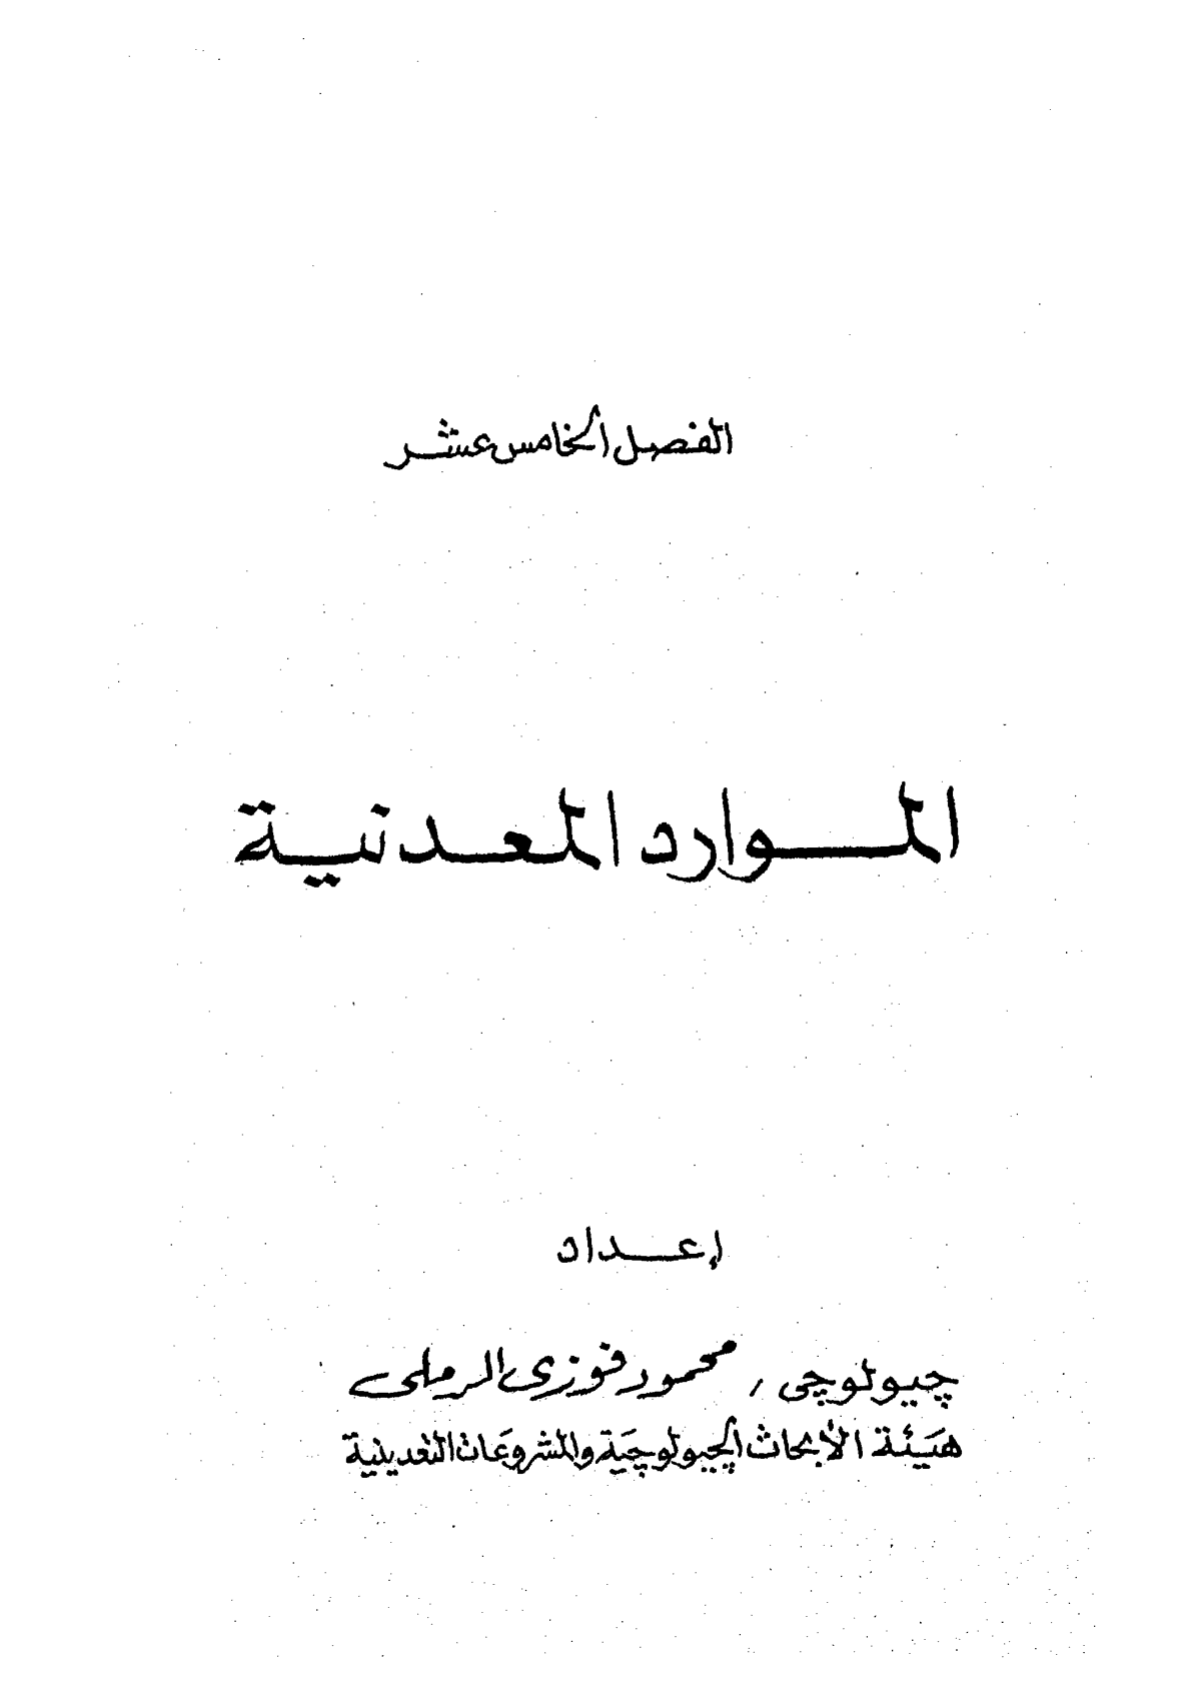 الفصل الخامس عشر
المــوارد المعـدنيـة
إعــداد
چيولوچى / محمود فوزى الرملى
هَيئة الأبحاث الچيولوچَية والمشروعَات التعدينية